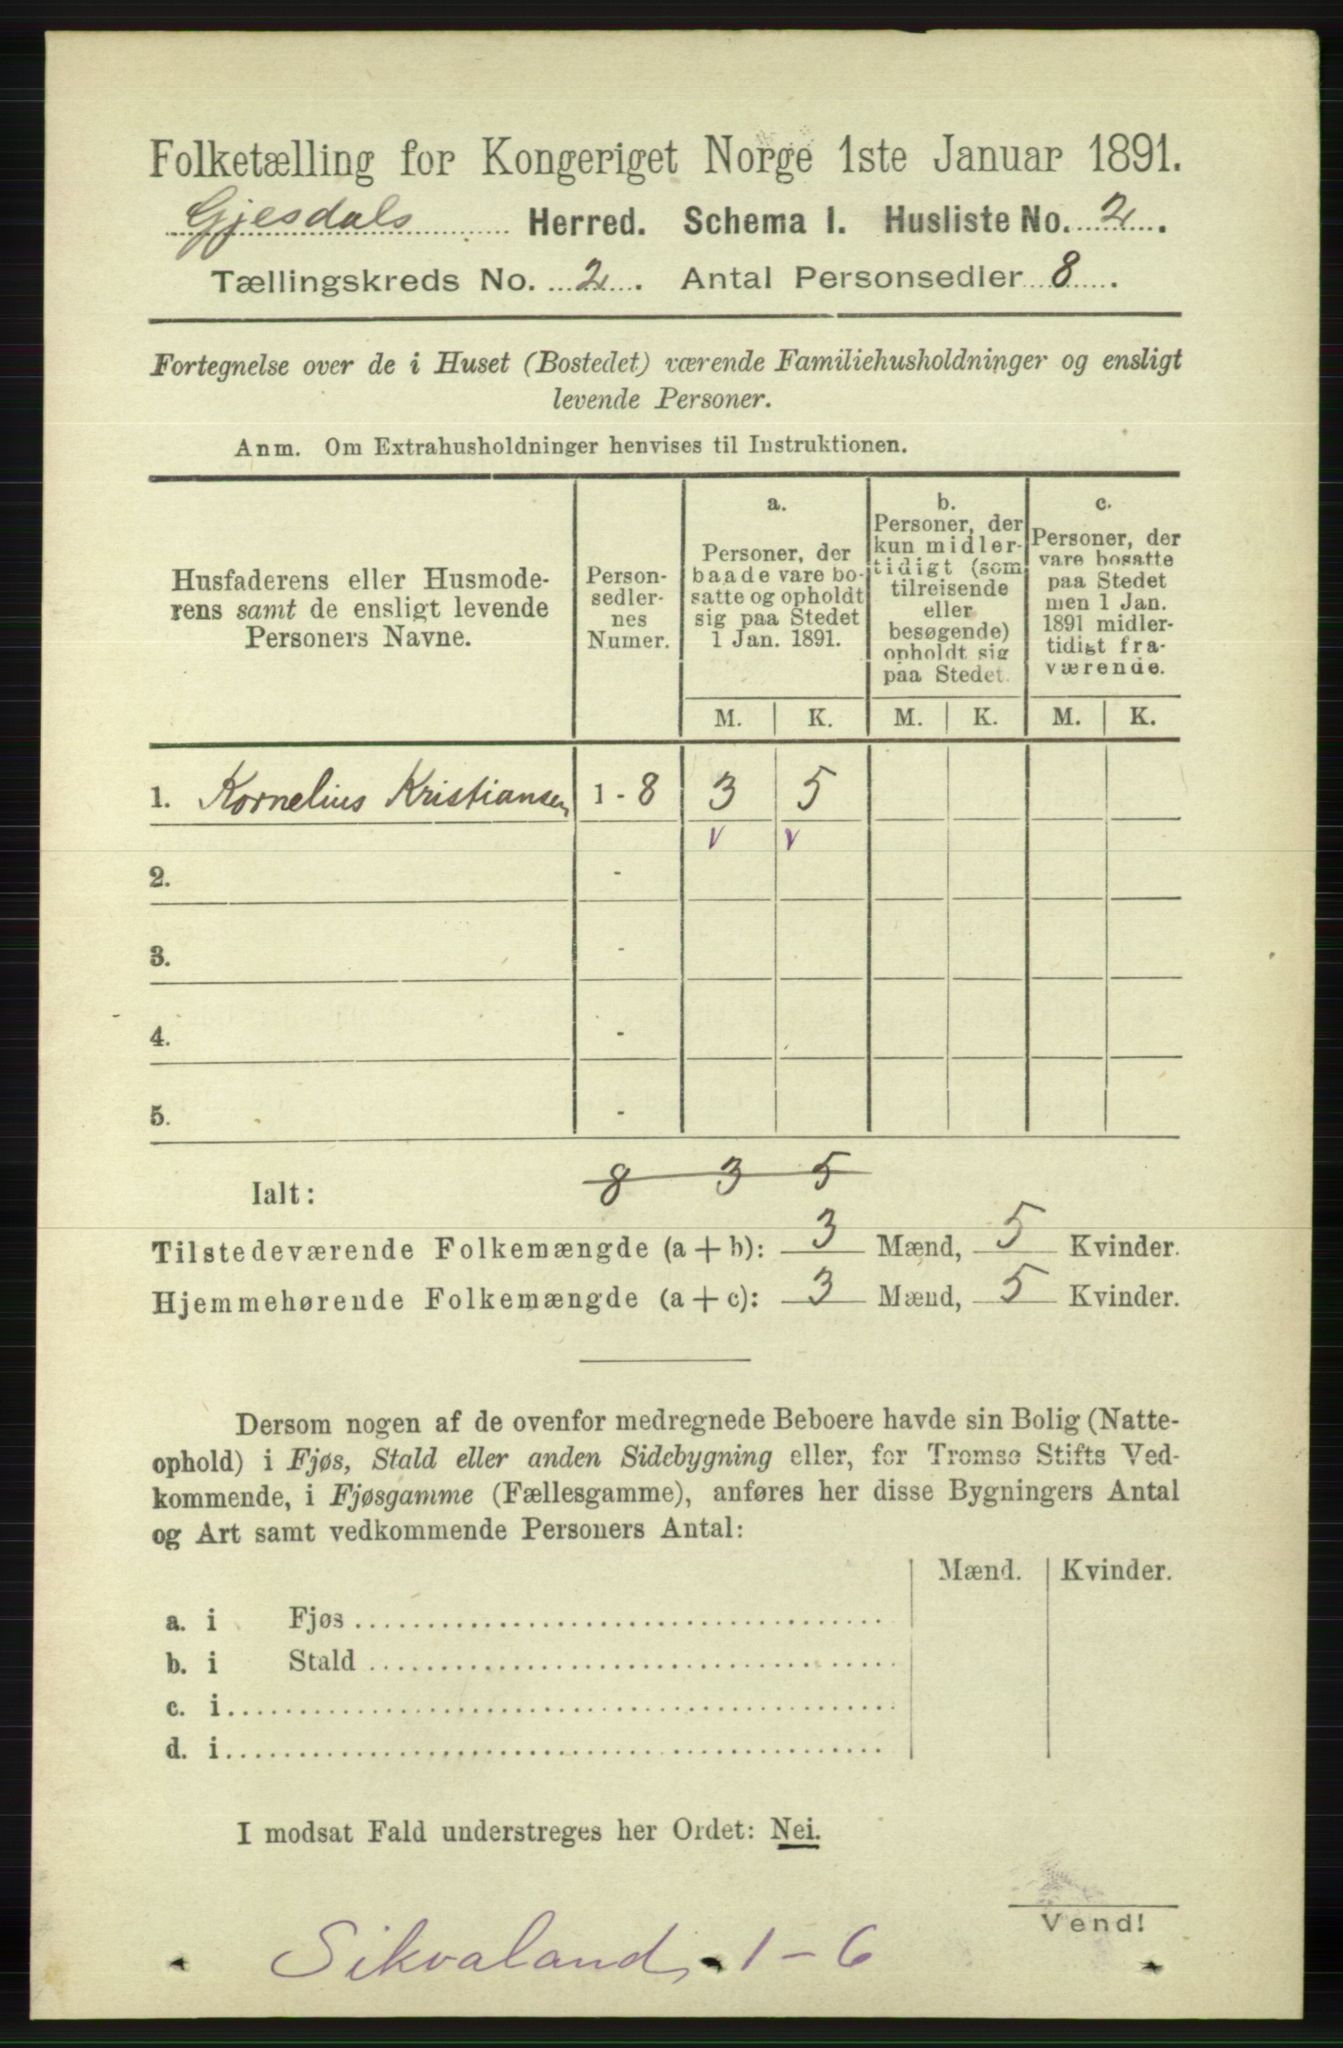 Folketælling for Kongeriget Norge 1ste Januar 1891.
Gjesdals Herred. Schema I. Husliste No. 2.
Tællingskreds No. 2. Antal Personsedler 8.
Fortegnelse over de i Huset (Bostedet) værende Familiehusholdninger og ensligt
levende Personer.
Anm. Om Extrahusholdninger henvises til Instruktionen.
Husfaderens eller Husmode-
rens samt de ensligt levende
Personers Navne.
Person-
sedler-
nes
Numer.
a.
Personer, der
baade vare bo-
satte og opholdt
sig paa Stedet
1 Jan. 1891.
b.
Personer, der
kun midler-
tidigt (som
tilreisende
eller
besøgende)
opholdt sig
paa Stedet.
c.
Personer, der
vare bosatte
paa Stedet
men 1 Jan.
1891 midler-
tidigt fra-
værende.
M. K. M. K. M. K.
1. Kornelius Kristiansen 1 - 8 3 5
v v
2. -
3. -
4. -
5. -
Ialt: 8 3 5
Tilstedeværende Folkemængde (a + b): 3 Mænd, 5 Kvinder.
Hjemmehørende Folkemængde (a + c): 3 Mænd, 5 Kvinder.
Dersom nogen af de ovenfor medregnede Beboere havde sin Bolig (Natte-
ophold) i Fjøs, Stald eller anden Sidebygning eller, for Tromsø Stifts Ved-
kommende, i Fjøsgamme (Fællesgamme), anføres her disse Bygningers Antal
og Art samt vedkommende Personers Antal:
Mænd. Kvinder.
a. i Fjøs
b. i Stald
c. i
d. i
I modsat Fald understreges her Ordet: Nei.
Vend!
Sikvaland, 1 - 6